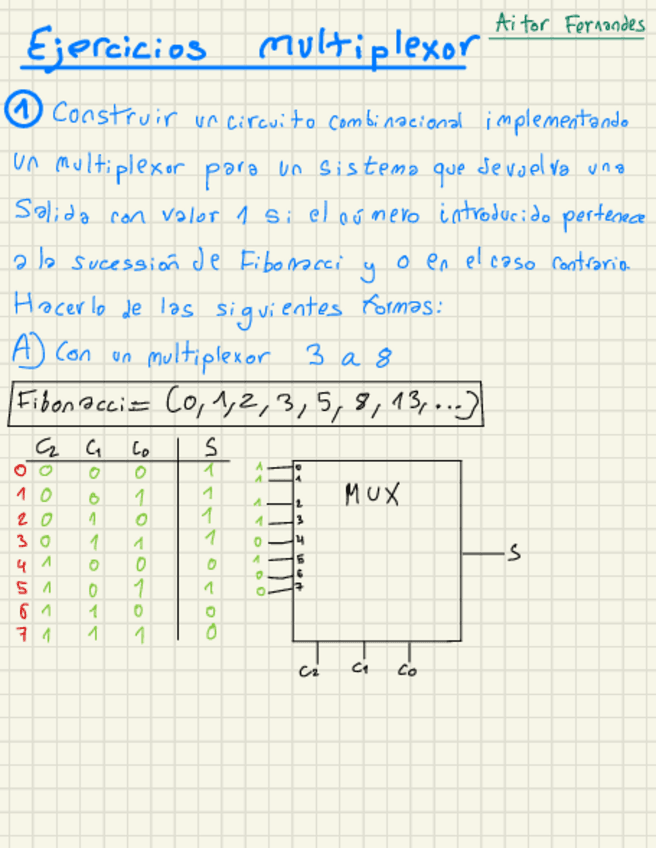 Ejercicios multiplexor
Aitor Fernandes
1 Construir un circuito combinacional implementando
un multiplexor para un sistema que devuelva una
Salida con valor 1 si el número introducido pertenece
a la sucessión de Fibonacci y 0 en el caso contrario.
Hacerlo de las siguientes formas:
A) Con un multiplexor 3 a 8
Fibonacci = (0, 1, 2, 3, 5, 8, 13, ...)
C2 C1 C0 S
0 0 0 0 1
1 0 0 1 1
2 0 1 0 1
3 0 1 1 1
4 1 0 0 0
5 1 0 1 1
6 1 1 0 0
7 1 1 1 0
MUX
1 0
1 1
1 2
1 3
0 4
1 5
0 6
0 7
S
C2 C1 C0